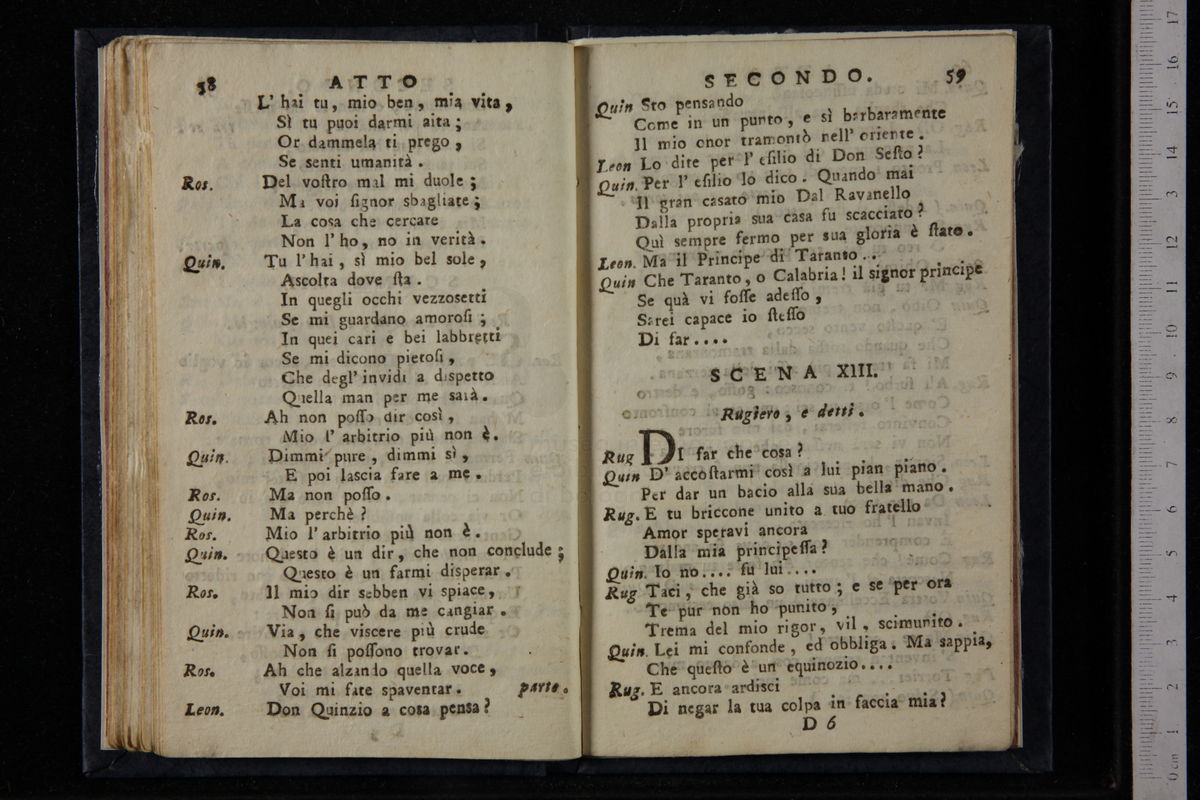 58 ATTO
L' hai tu, mio ben, mia vita,
Sì tu puoi darmi aita;
Or dammela ti prego,
Se senti umanità.
Ros. Del voſtro mal mi duole;
Ma voi ſignor sbagliate;
La cosa che cercate
Non l' ho, no in verità.
Quin. Tu l' hai, sì mio bel sole,
Ascolta dove ſta.
In quegli occhi vezzosetti
Se mi guardano amoroſi;
In quei cari e bei labbretti
Se mi dicono pietoſi,
Che degl' invidi a dispetto
Quella man per me sarà.
Ros. Ah non poſſo dir così,
Mio l' arbitrio più non è.
Quin. Dimmi pure, dimmi sì,
E poi lascia fare a me.
Ros. Ma non poſſo.
Quin. Ma perchè?
Ros. Mio l' arbitrio più non è.
Quin. Questo è un dir, che non conclude;
Questo è un farmi disperar.
Ros. Il mio dir sebben vi spiace,
Non ſi può da me cangiar.
Quin. Via, che viscere più crude
Non ſi poſſono trovar.
Ros. Ah che alzando quella voce,
Voi mi fate spaventar. parte.
Leon. Don Quinzio a cosa pensa?
SECONDO. 59
Quin Sto pensando
Come in un punto, e sì barbaramente
Il mio onor tramontò nell' oriente.
Leon Lo dite per l' eſilio di Don Seſto?
Quin. Per l' eſilio lo dico. Quando mai
Il gran casato mio Dal Ravanello
Dalla propria sua casa fu scacciato?
Quì sempre fermo per sua gloria è ſtato.
Leon. Ma il Principe di Taranto...
Quin Che Taranto, o Calabria! il signor principe
Se quà vi foſſe adeſſo,
Sarei capace io ſteſſo
Di far....
SCENA XIII.
Rugiero, e detti.
Rug DI far che cosa?
Quin D' accoſtarmi così a lui pian piano.
Per dar un bacio alla sua bella mano.
Rug. E tu briccone unito a tuo fratello
Amor speravi ancora
Dalla mia principeſſa?
Quin. Io no.... fu lui....
Rug Taci, che già so tutto; e se per ora
Te pur non ho punito,
Trema del mio rigor, vil, scimunito.
Quin. Lei mi confonde, ed obbliga. Ma sappia,
Che queſto è un equinozio....
Rug. E ancora ardisci
Di negar la tua colpa in faccia mia?
D 6
0 cm 1 2 3 4 5 6 7 8 9 10 11 12 13 14 15 16 17